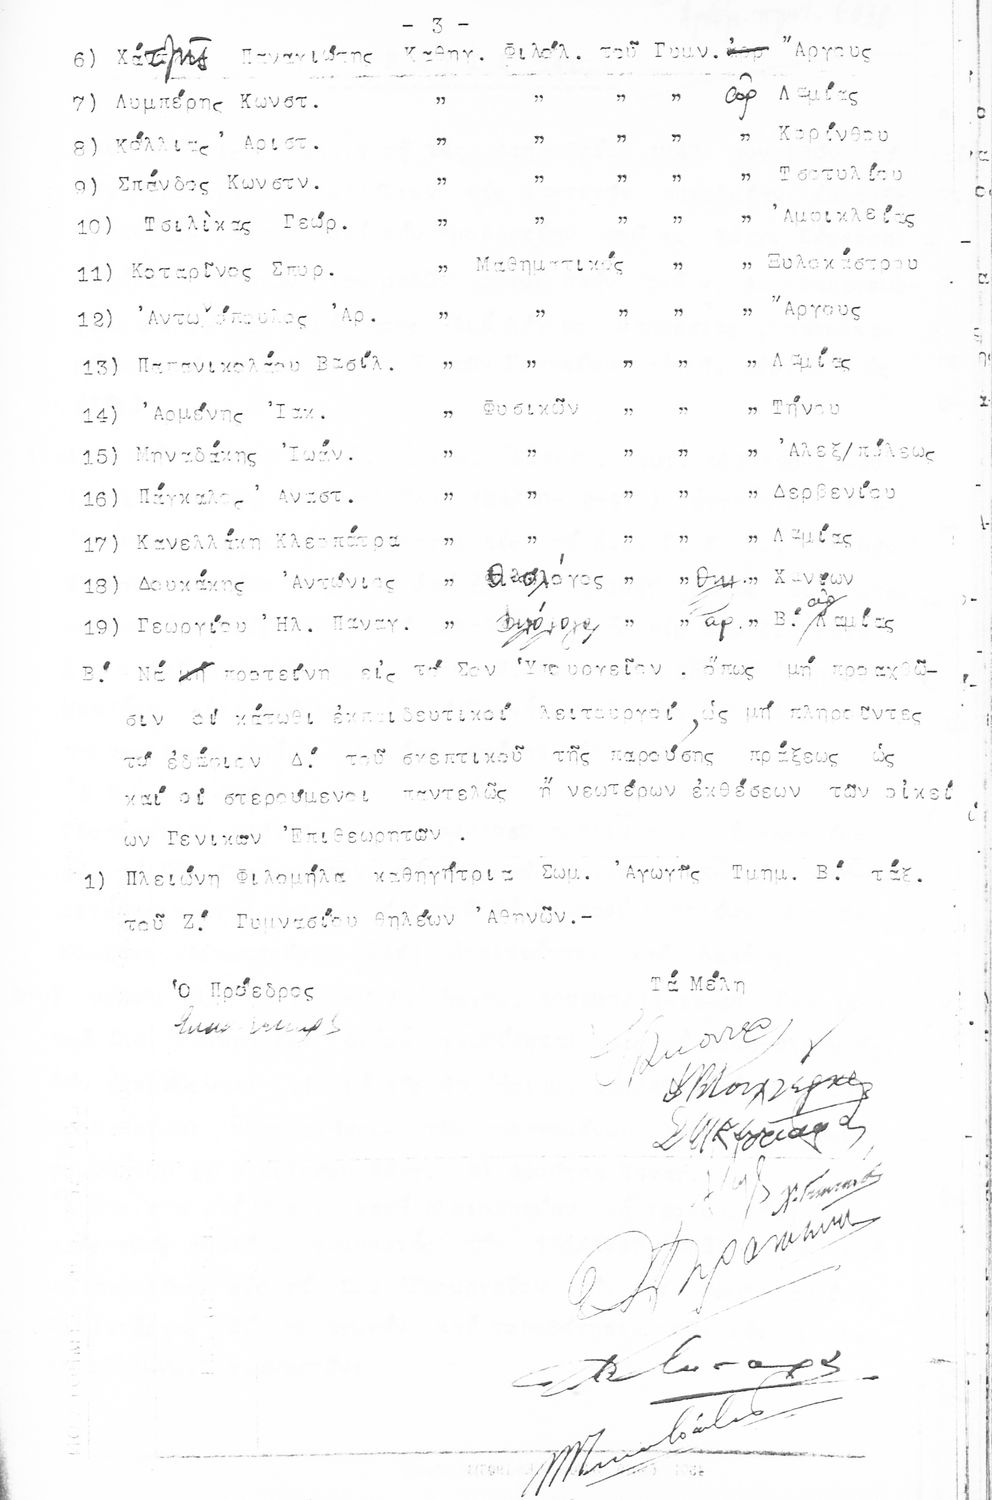 - 3 -
6) Χάτζης Παναγιώτης Καθηγ. Φιλολ. τοῦ Γυμν. Ἄργους
7) Λυμπέρης Κωνστ. " " " " ἀρ Λαμίας
8) Κόλλιας Ἀριστ. " " " " " Κορίνθου
9) Σπάνδος Κωνστν. " " " " " Τσοτυλίου
10) Τσιλίκας Γεώρ. " " " " " Ἀμφικλείας
11) Κοταρῖνος Σπυρ. " Μαθηματικός " " Ξυλοκάστρου
12) Ἀντωνόπουλος Ἀρ. " " " " " Ἄργους
13) Παπανικολάου Βασίλ. " " " " " Λαμίας
14) Ἀρμένης Ἰακ. " Φυσικῶν " " " Τήνου
15) Μηναδάκης Ἰωάν. " " " " " Ἀλεξ/πόλεως
16) Πάγκαλος Ἀναστ. " " " " " Δερβενίου
17) Κανελλάκη Κλεοπάτρα " " " " " Λαμίας
18) Δουκάκης Ἀντώνιος " Θεολόγος " " " Χανίων
19) Γεωργίου Ἠλ. Παναγ. " " " ἀρ. " Β.' Λαμίας
Β.' Νά μή προτείνη εἰς τό Σον Ὑπουργεῖον . ὅπως μή προαχθῶ-
σιν οἱ κάτωθι ἐκπαιδευτικοί λειτουργοί, ὡς μή πληροῦντες
τό ἐδάφιον Δ.' τοῦ σκεπτικοῦ τῆς παρούσης πράξεως ὡς
καί οἱ στερούμενοι παντελῶς ἤ νεωτέρων ἐκθέσεων τῶν οἰκεί
ων Γενικων Ἐπιθεωρητῶν .
1) Πλειώνη Φιλομήλα καθηγήτρια Σωμ. Ἀγωγῆς Τμημ. Β.' τάξ.
τοῦ Ζ.' Γυμνασίου θηλέων Ἀθηνῶν.-
Ὁ Πρόεδρος Τά Μέλη